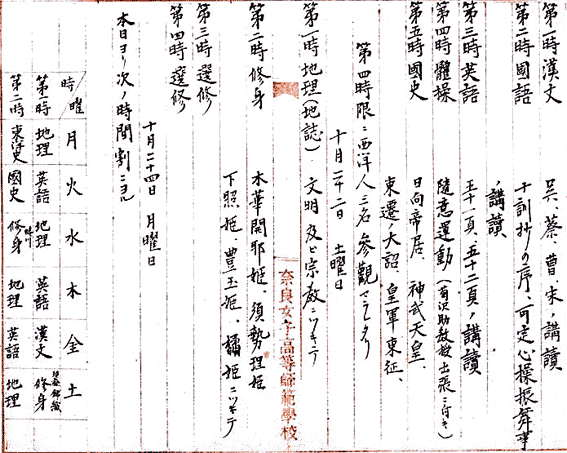 第一時 漢文 呉、蔡、曹、宋、講讀
第二時 國語 十訓抄の序、可定心操振舞事
、講讀
第三時 英語 五十一頁、五十二頁、講讀
第四時 體操 隨意運動(有沢助教授出張ニ付キ)
第五時 國史 日向帝居、神武天皇、
東遷ノ大詔、皇軍東征、
第四時限ニ西洋人三名參觀セラレタリ
十月二十二日 土曜日
第一時 地理(地誌) 文明及ビ宗教ニツキテ
奈良女子高等師範學校
第二時 修身 木華開耶姫、須勢理姫
下照姫、豊玉姫、橘姫ニツキテ
第三時 選修
第四時 選修
十月二十四日 月曜日
本日ヨリ次ノ時間割ニヨル
時/曜 月 火 水 木 金 土
第一時 地理 英語 地理 英語 漢文 修身
第二時 東洋史 國史 修身 地理 英語 地理